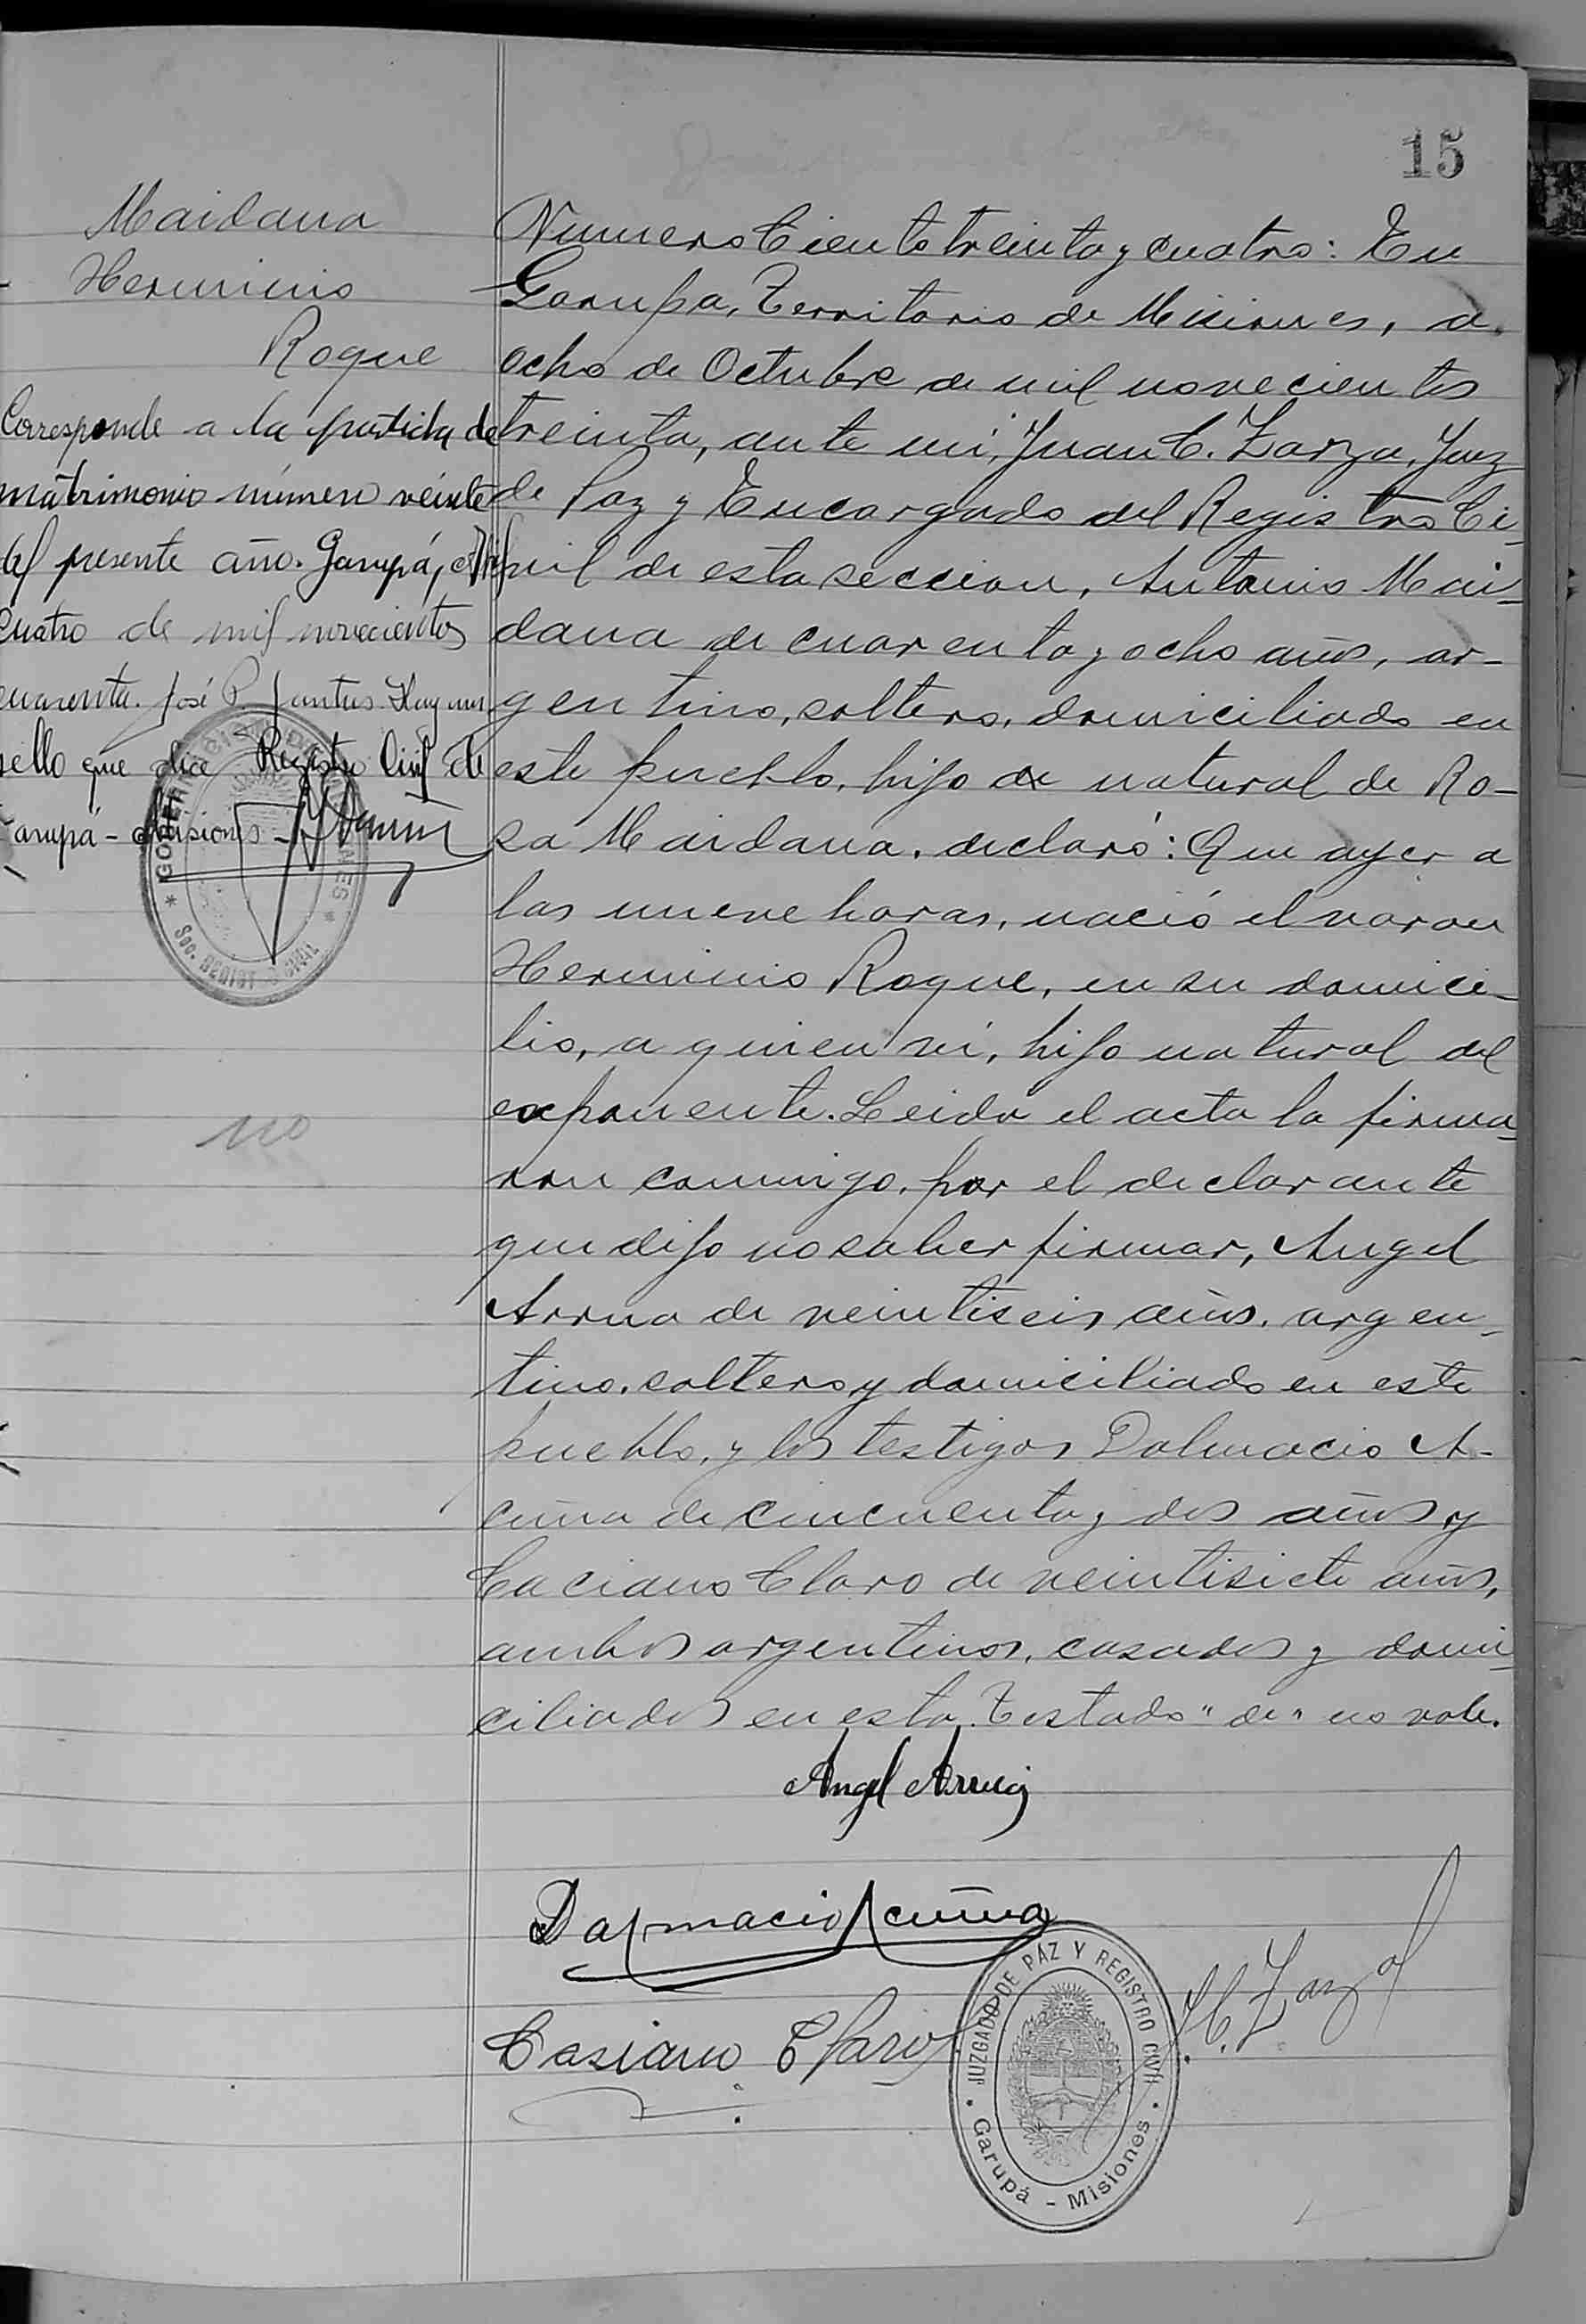 15
Maidana
Herminio
Roque
Corresponde a la partida de
matrimonio número veinte
del presente año. Garupá,
cuatro de mil novecientos
cuarenta. José P. Santus. Hay un
sello que dice Registro Civil de
Garupá - Misiones -
GOBERNACION DE MISIONES
no
Numero Ciento treinta y cuatro: En
Garupa, Territorio de Misiones, a
ocho de Octubre de mil novecientos
treinta, ante mi, Juan C. Zarza, Juez
de Paz y Encargado del Registro Ci-
vil de esta seccion, Antonio Mai-
dana de cuarenta y ocho años, ar-
gentino, soltero, domiciliado en
este pueblo, hijo de natural de Ro-
sa Maidana, declaró: Que ayer a
las nueve horas, nació el varon
Herminio Roque, en su domici-
lio, a quien vi, hijo natural del
exponente. Leida el acta la firma-
ron conmigo, por el declarante
que dijo no saber firmar, Angel
Arrua de veintiseis años, argen-
tino, soltero y domiciliado en este
pueblo, y los testigos Dalmacio A-
cuña de cincuenta y dos años y
Caciano Claro de veintisiete años,
ambos argentinos, casados y domi-
ciliados en esta. Testado "de" no vale.
Angel Arrua
Dalmacio Acuña
Casiano Claro
J. C. Zarza
JUZGADO DE PAZ Y REGISTRO CIVIL
Garupá - Misiones